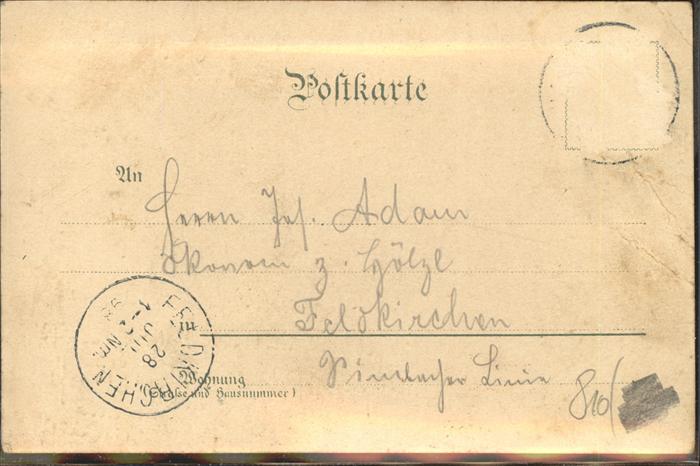 Postkarte
An
Herrn Jos. Adam
Ökonom z. Hölzl
in
Feldkirchen
Linie
Wohnung
(Straße und Hausnummer)
FELDKIRCHEN
28
JUL
1-2 Nm.
98
810